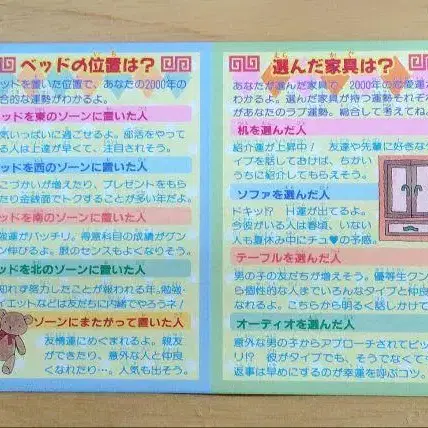 ベッドの位置は?
ッドを置いた位置で、あなたの2000年の
合的な運勢がわかるよ。
ッドを東のゾーンに置いた人
気いっぱいに過ごせるよ。部活をやって
る人は上達が早くて、注目されそう。
ッドを西のゾーンに置いた人
こづかいが増えたり、プレゼントをもら
たり金銭面でトクすることが多い年だよ。
ッドを南のゾーンに置いた人
強運がバッチリ。得意科目の成績がグン
ン伸びるよ。服のセンスもよくなりそう。
ッドを北のゾーンに置いた人
知れず努力したことが報われる年。勉強・
イエットなどは友だちに内緒でやろうネ!
ゾーンにまたがって置いた人
友情運にめぐまれるよ。親友
ができたり、意外な人と仲良
くなれたり…。人気も出そう。
選んだ家具は?
あなたが選んだ家具で、2000年の恋愛運が
わかるよ。選んだ家具が持つ運勢それぞれ
があなたのラブ運勢。総合して考えてね。
机を選んだ人
紹介運が上昇中! 友達や先輩に好きなタ
イプを話しておけば、ちかい
うちに紹介してもらえそう。
ソファを選んだ人
ドキッ!? H運が出てるよ。
今彼がいる人は春頃、いない
人も夏休み中にチュ♥の予感。
テーブルを選んだ人
男の子の友だちが増えそう。優等生クン
ら個性的な人までいろんなタイプと仲良
なれるよ。こちらから明るく話しかけて
オーディオを選んだ人
意外な男の子からアプローチされてビッ
リ!? 彼がタイプでも、そうでなくても
返事は早めにするのが幸運を呼ぶコツ。